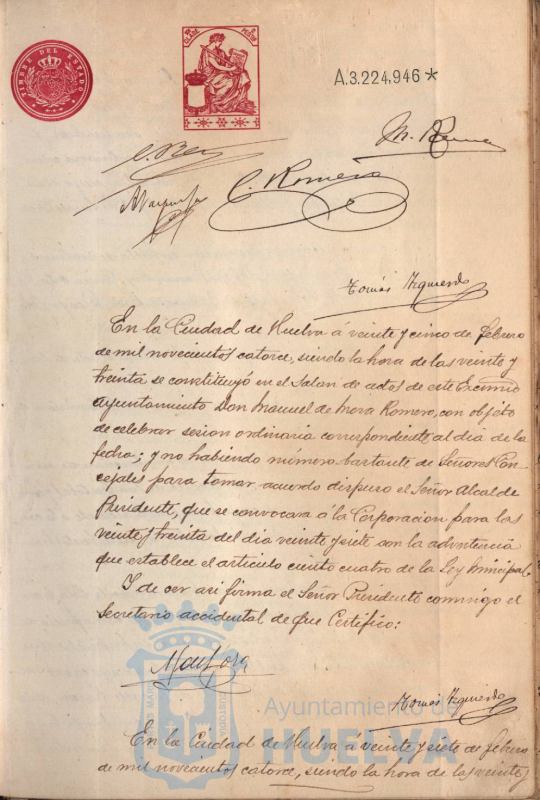 TIMBRE DEL ESTADO
A.3.224,946 *
C. Romero
Tomás Izquierdo
En la Ciudad de Huelva á veinte y cinco de febrero
de mil novecientos catorce, siendo la hora de las veinte y
treinta se constituyó en el Salon de actos de este Excmo
Ayuntamiento Don Manuel de Mora Romero, con objeto
de celebrar sesion ordinaria correspondiente al dia de la
fecha; y no habiendo número bastante de Señores Con-
cejales para tomar acuerdo dispuso el Señor Alcalde
Presidente, que se convocara á la Corporacion para las
veinte y treinta del dia veinte y siete con la advertencia
que establece el articulo ciento cuatro de la Ley Municipal.
Y de ser asi firma el Señor Presidente conmigo el
Secretario accidental de que Certifico:
Tomás Izquierdo
Ayuntamiento de
HUELVA
En la Ciudad de Huelva á veinte y siete de febrero
de mil novecientos catorce, siendo la hora de las veinte y